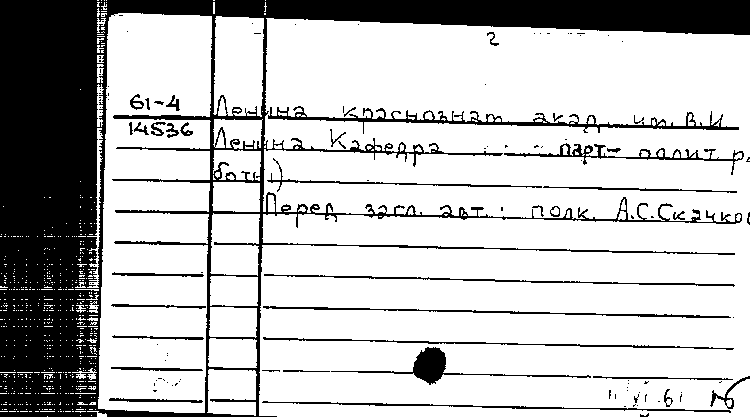 2
61-4 Ленина краснознам акад. им. В.И
14536 Ленина. Кафедра парт- полит ра
боты)
Перед загл. авт.: полк. А.С.Скачков
VI 61